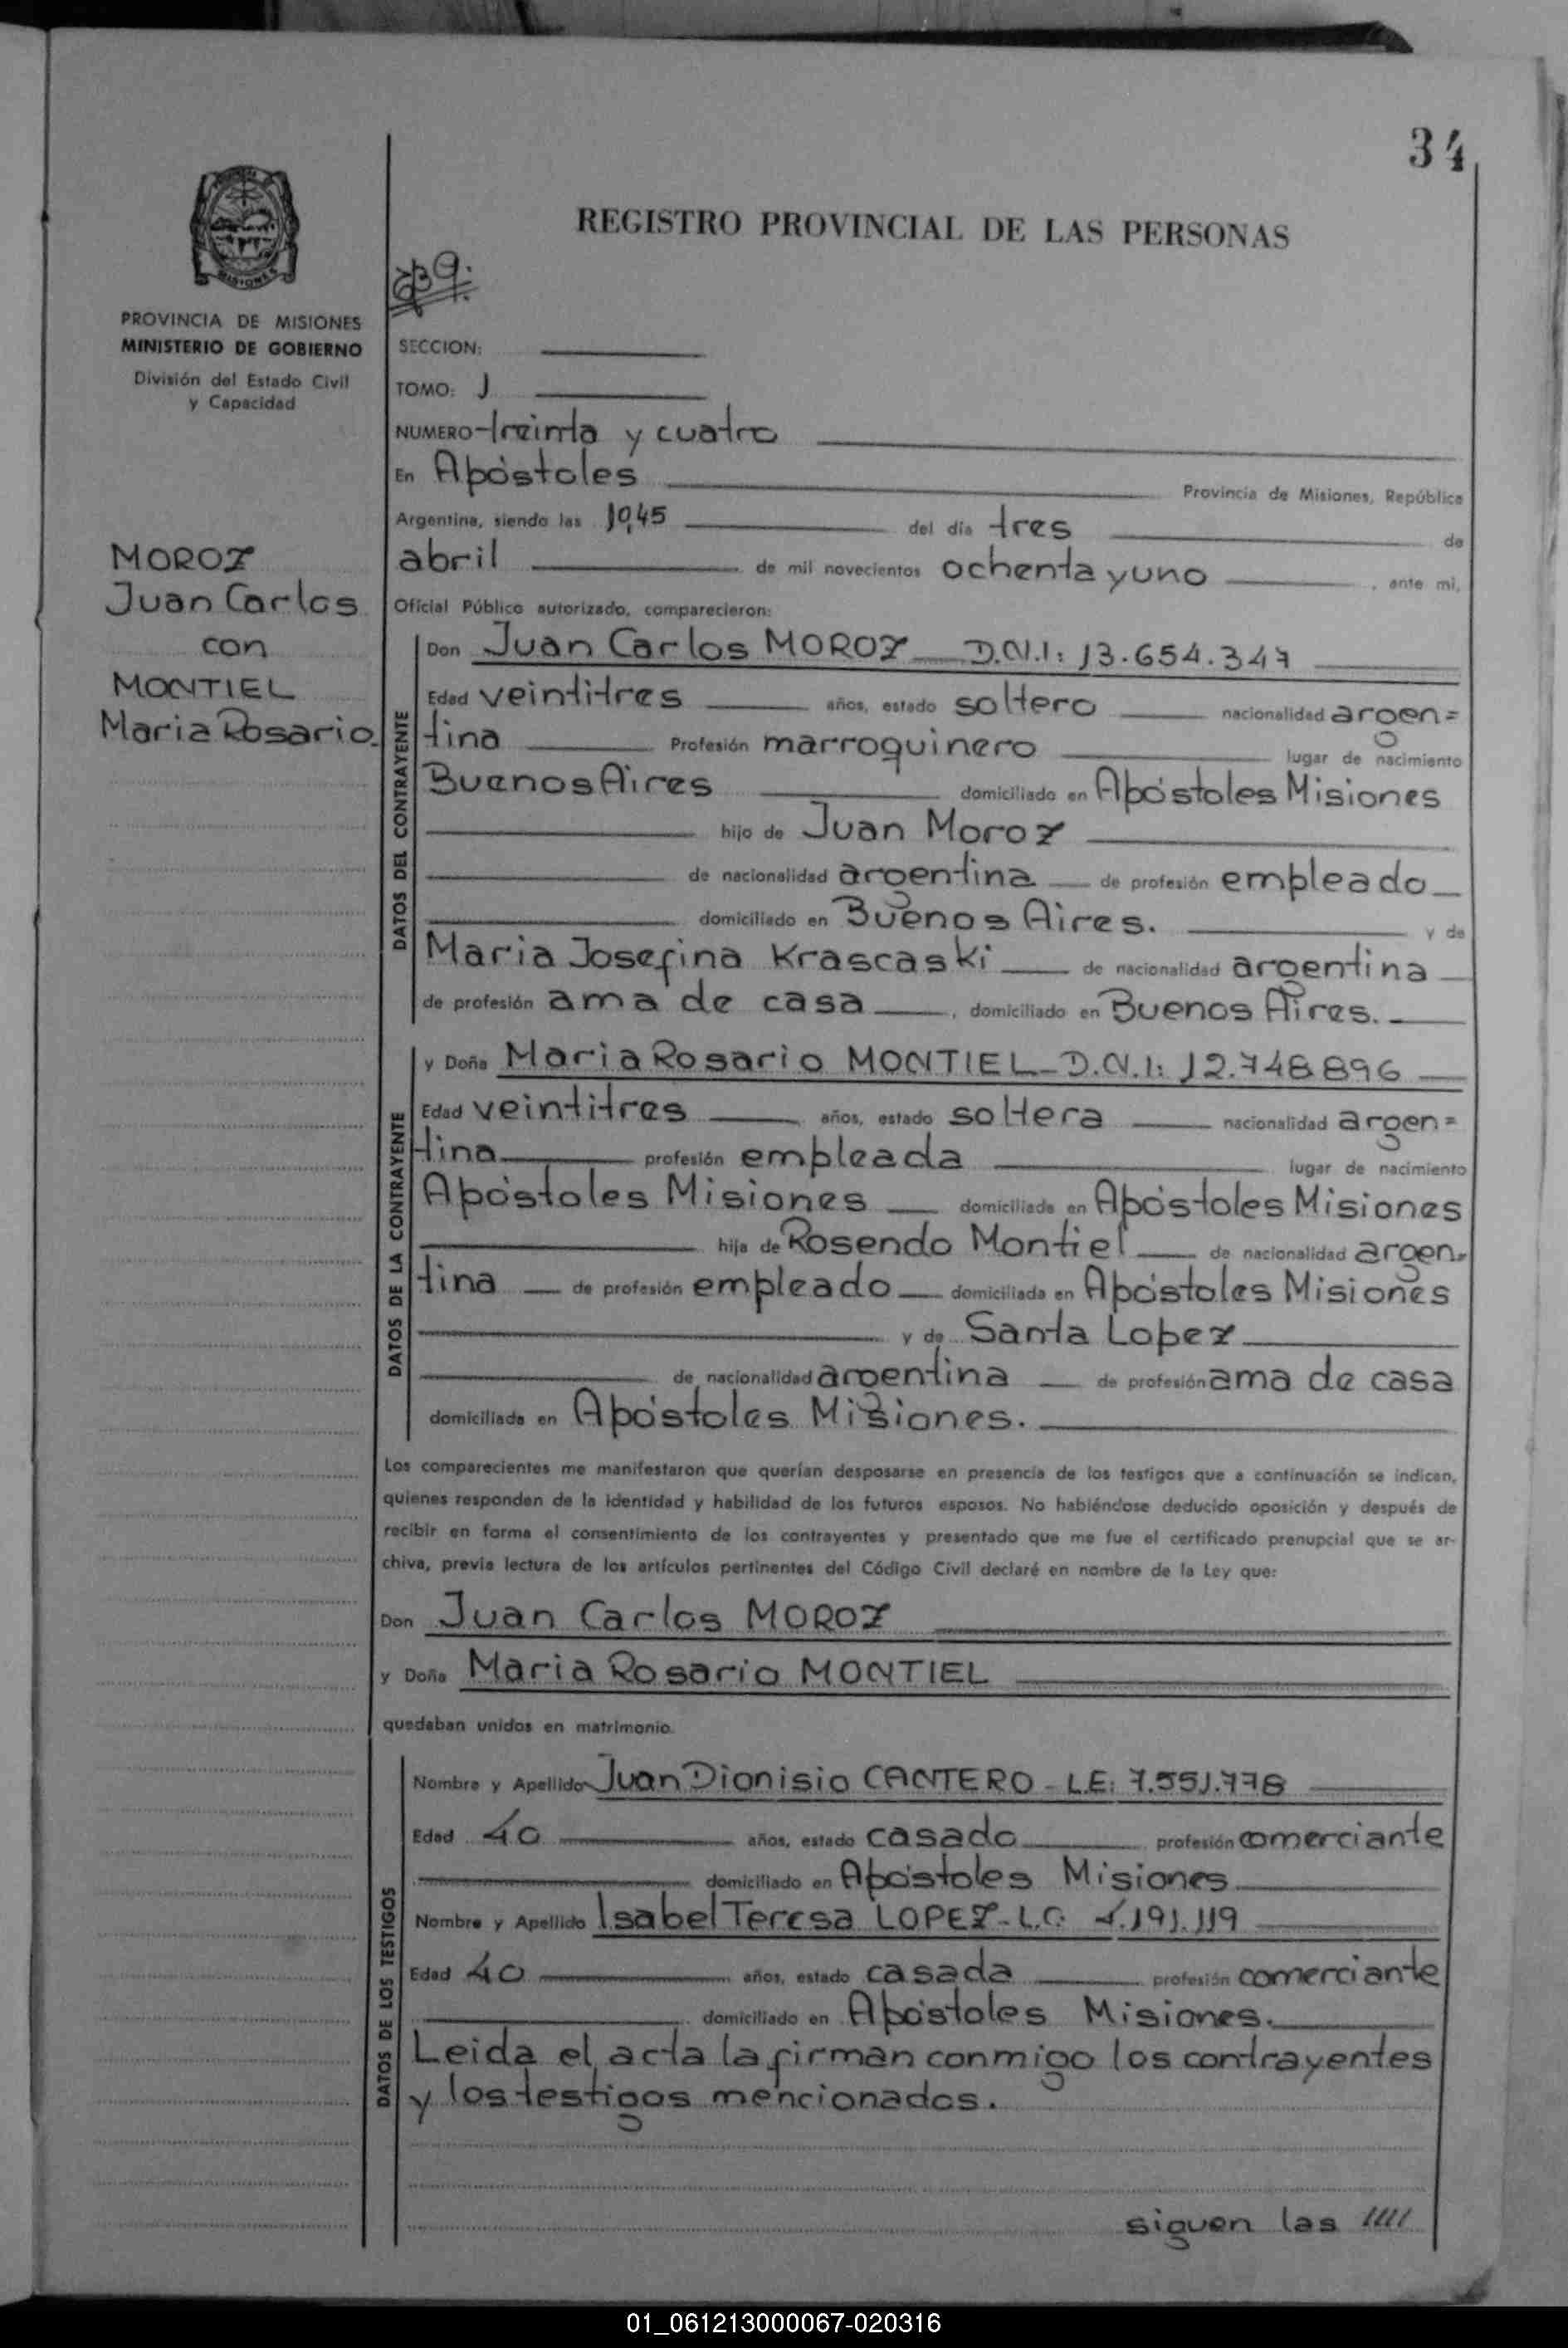 34
REGISTRO PROVINCIAL DE LAS PERSONAS
839.
MISIONES
PROVINCIA DE MISIONES
MINISTERIO DE GOBIERNO
División del Estado Civil
y Capacidad
SECCION:
TOMO: I
NUMERO treinta y cuatro
En Apóstoles Provincia de Misiones, República
Argentina, siendo las 10,45 del día tres de
abril de mil novecientos ochenta y uno, ante mi,
Oficial Público autorizado, comparecieron:
MOROZ
Juan Carlos
con
MONTIEL
Maria Rosario.
DATOS DEL CONTRAYENTE
Don Juan Carlos MOROZ D.N.I: 13.654.347
Edad veintitres años, estado soltero nacionalidad argen=
tina Profesión marroquinero lugar de nacimiento
Buenos Aires domiciliado en Apóstoles Misiones
hijo de Juan Moroz
de nacionalidad argentina de profesión empleado
domiciliado en Buenos Aires. y de
Maria Josefina Krascaski de nacionalidad argentina
de profesión ama de casa, domiciliado en Buenos Aires.
DATOS DE LA CONTRAYENTE
y Doña Maria Rosario MONTIEL D.N.I: 12.748.896
Edad veintitres años, estado soltera nacionalidad argen=
tina profesión empleada lugar de nacimiento
Apóstoles Misiones domiciliada en Apóstoles Misiones
hija de Rosendo Montiel de nacionalidad argen=
tina de profesión empleado domiciliada en Apóstoles Misiones
y de Santa Lopez
de nacionalidad argentina de profesión ama de casa
domiciliada en Apóstoles Misiones.
Los comparecientes me manifestaron que querían desposarse en presencia de los testigos que a continuación se indican,
quienes responden de la identidad y habilidad de los futuros esposos. No habiéndose deducido oposición y después de
recibir en forma el consentimiento de los contrayentes y presentado que me fue el certificado prenupcial que se ar-
chiva, previa lectura de los artículos pertinentes del Código Civil declaré en nombre de la Ley que:
Don Juan Carlos MOROZ
y Doña Maria Rosario MONTIEL
quedaban unidos en matrimonio.
DATOS DE LOS TESTIGOS
Nombre y Apellido Juan Dionisio CANTERO - L.E: 7.551.778
Edad 40 años, estado casado profesión comerciante
domiciliado en Apóstoles Misiones
Nombre y Apellido Isabel Teresa LOPEZ - L.C: 4.191.119
Edad 40 años, estado casada profesión comerciante
domiciliado en Apóstoles Misiones.
Leida el acta la firman conmigo los contrayentes
y los testigos mencionados.
siguen las /////
01_061213000067-020316